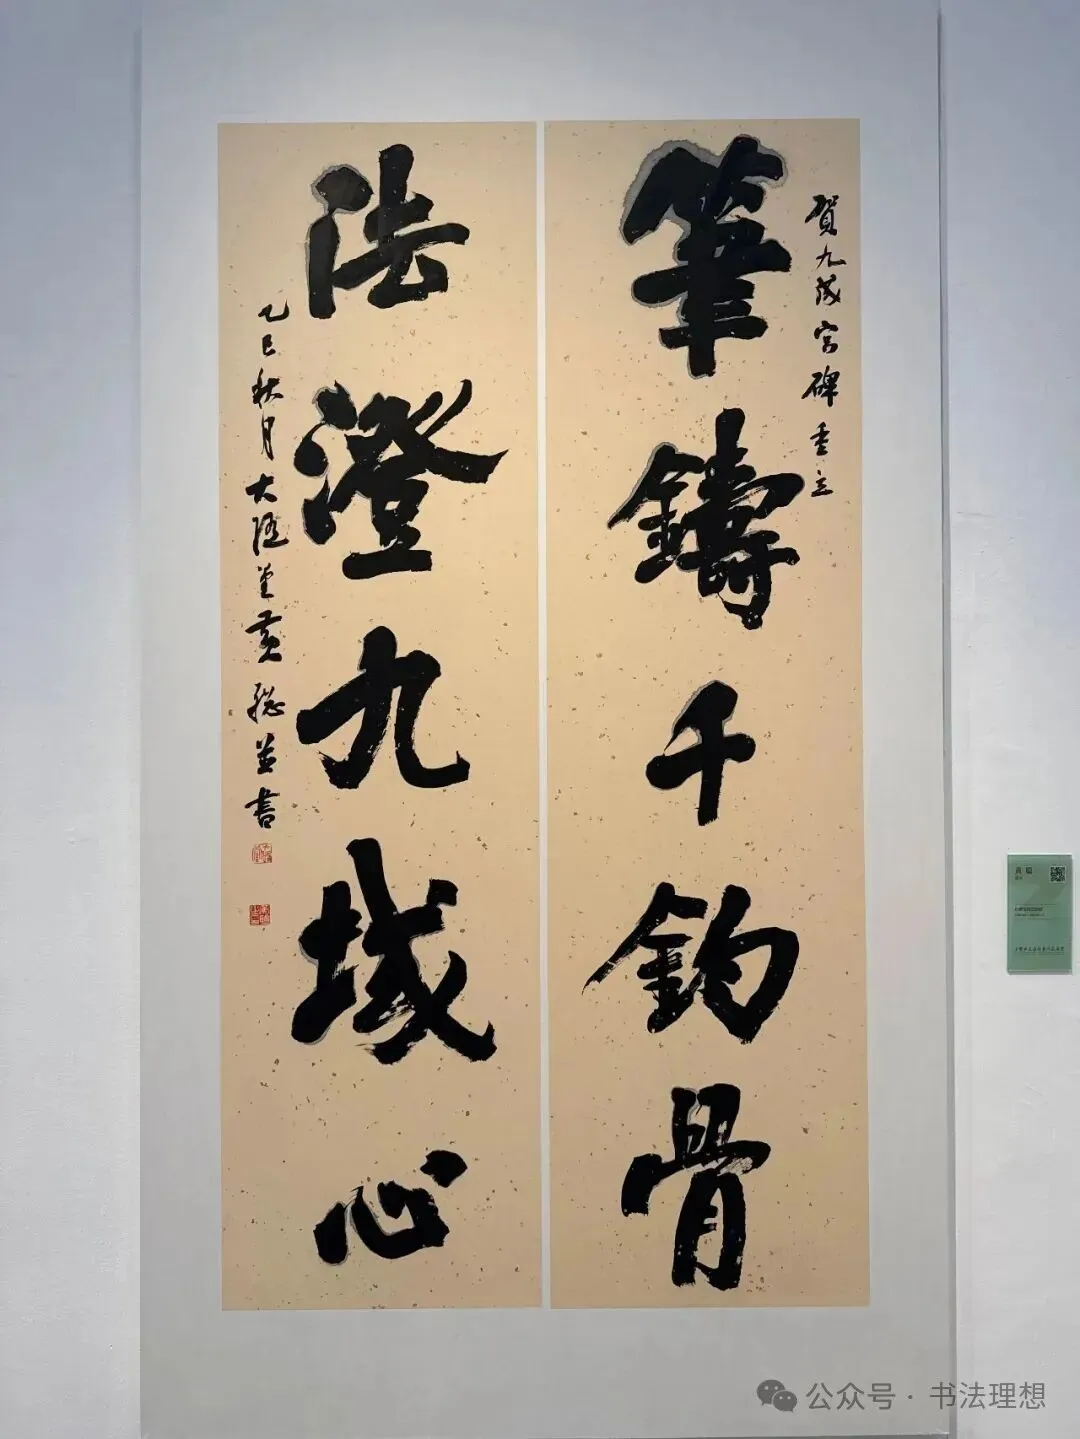 賀九成宮碑重立
筆鑄千鈞骨
法澄九域心
乙巳秋月大隱堂黄聪並書
公众号·书法理想